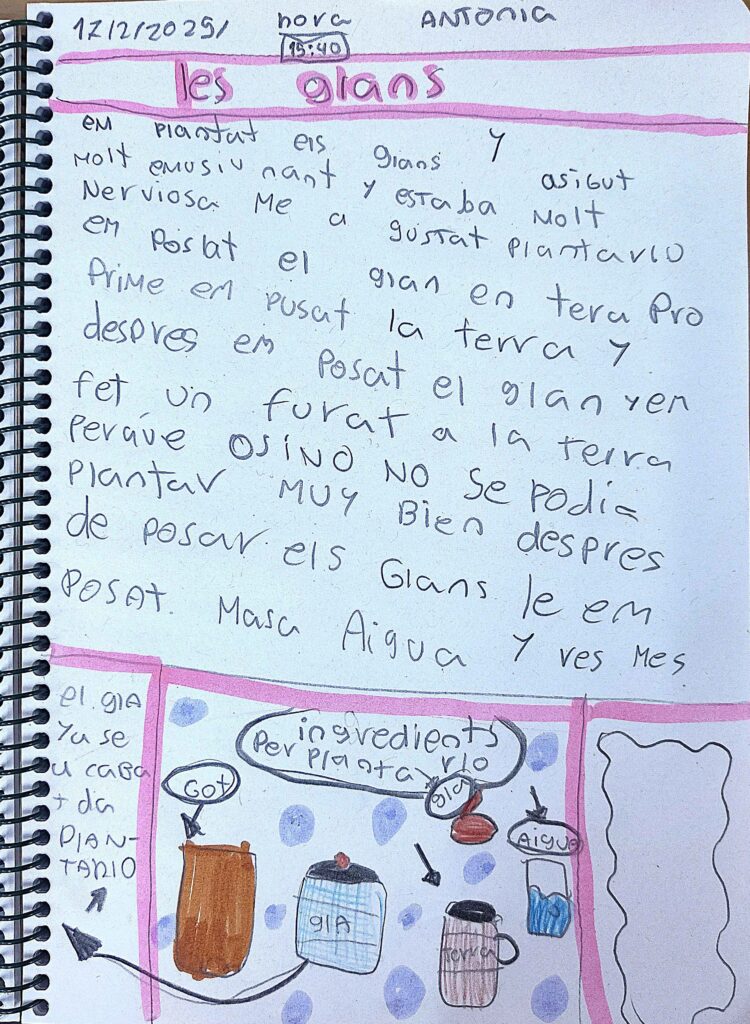 17/2/2025/ hora ANTONIA
15:40
les glans
em plantat els glans y
molt emusiu nant asigut
y estaba molt
Nerviosa Me a gustat plantarlo
em poslat el glan en tera pro
Prime em pusat la terra y
despres em posat el glan yem
fet un furat a la terra
perque osino no se podia
plantar MUY Bien despres
de posar els Glans le em
posat. Masa Aigua y res mes
el glA
ya se
u caba
t da
PlAN-
TARlO
ingredients
Per plantarlo
GOT
glA
Aigua
glA
terra